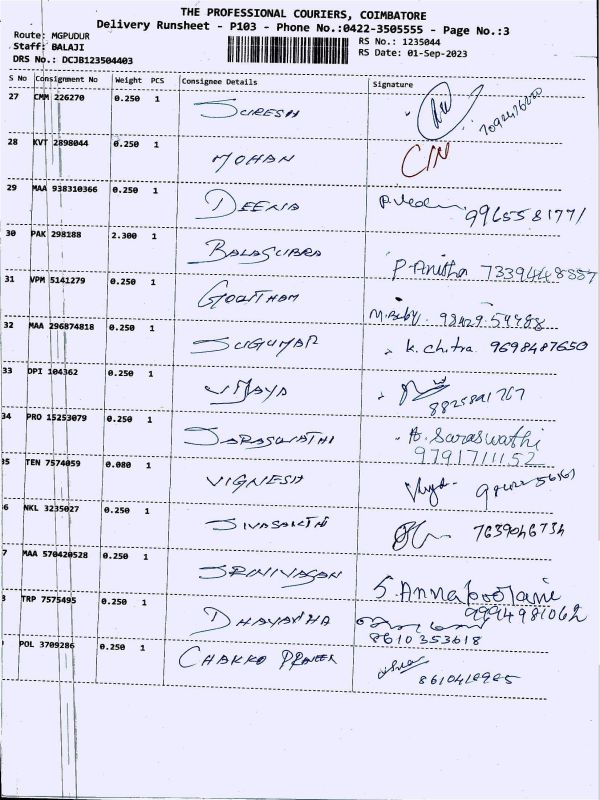 THE PROFESSIONAL COURIERS, COIMBATORE
Delivery Runsheet - P103 - Phone No.:0422-3505555 - Page No.:3
Route: MGPUDUR
RS No.: 1235044
Staff: BALAJI
RS Date: 01-Sep-2023
DRS No.: DCJB123504403
S No Consignment No Weight PCS Consignee Details Signature
27 CMM 226270 0.250 1 SURESH
28 KVT 2898044 0.250 1 MOHAN C/N
29 MAA 938310366 0.250 1 DEENA 9965581771
30 PAK 298188 2.300 1 BALASUBRA P. Anitha 7339448887
31 VPM 5141279 0.250 1 GOUTHAM M. Baby. 98429 54488
32 MAA 296874818 0.250 1 SUGUMAR K. Chitra. 9698487650
33 DPI 104362 0.250 1 VIJAYA
34 PRO 15253079 0.250 1 SARASWATHI A. Saraswathi
9791711152
35 TEN 7574059 0.080 1 VIGNESH
6 NKL 3235027 0.250 1 SIVASAKTHI 7639046734
7 MAA 570420528 0.250 1 SRINIVASAN S. Annapoorani
9994981062
TRP 7575495 0.250 1 DHAYANHA
8610353618
POL 3709286 0.250 1 CHAKKO PRAVEEN